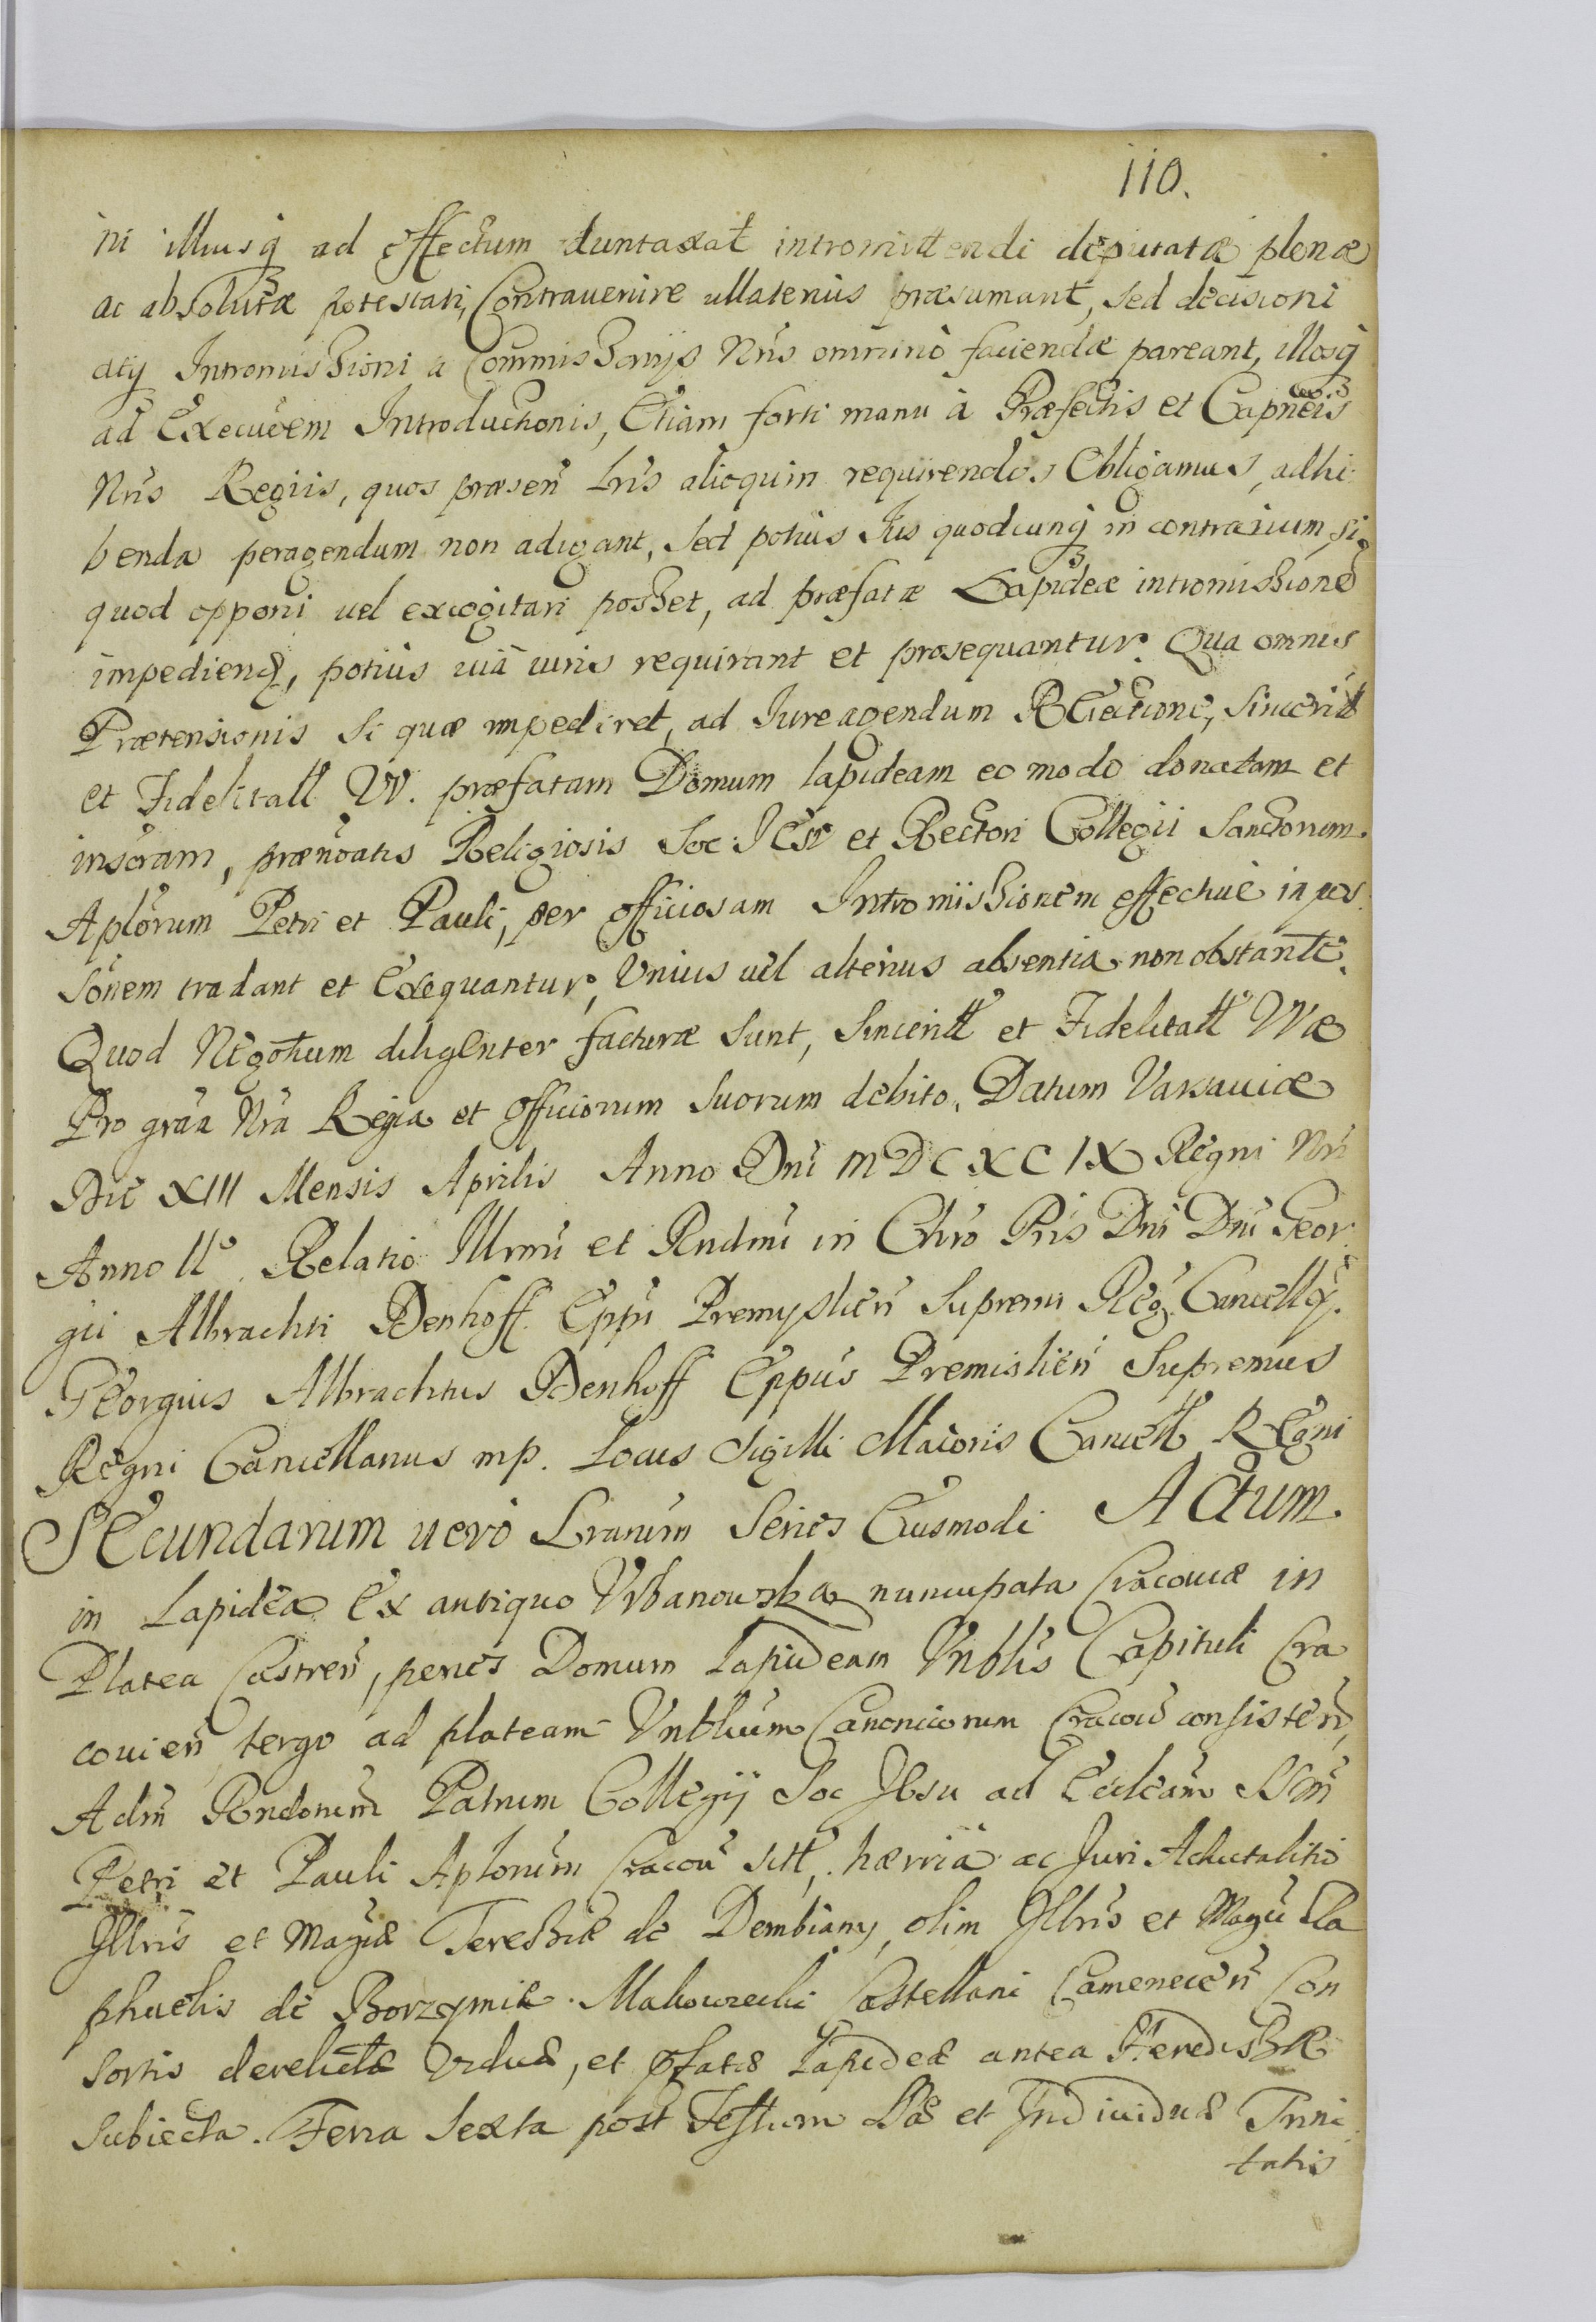 110.
ni illiusq ad effectum duntaxat intromittendi deputatæ plenæ
ac absolutæ potestati, Contravenire ullatenus præsumant, sed decisioni
atq Intromissioni a Commissarijs Nris omnino faciendæ pareant, illosq
ad Execuoem Introductionis, Etiam forti manu à Præfectis et Capneis
Nris Regiis, quos præsen Lris alioquin requirendos Obligamus, adhi
benda peragendum non adigant, sed potius Jus quodcunq in contrarium, si
quod opponi vel excogitari posset, ad præfatæ Lapideæ intromissione
impediend, potius viâ iuris requirant et prosequantur. Qua omnis
Prætensionis si quæ impediret, ad Jure agendum Reiectione, Sincerit
et Fidelitatt VV. præfatam Domum lapideam eo modo donatam et
inscram, prænoatis Religiosis Soc JEsu et Rectori Collegii Sanctorum
Aplorum Petri et Pauli, per officiosam Intromissionem effective in pos
sonem tradant et Exequantur, Vnius vel alterius absentia non obstante.
Quod Negotium diligenter facturæ sunt, Sinceritt et Fidelitatt VVæ
Pro graa Nra Regia et officiorum suorum debito. Datum Varsaviæ
Die XIII Mensis Aprilis Anno Dni MDCXCIX Regni Nri
Anno IIº. Relatio Illmi et Rndmi in Chro Pris Dni Dni Geor
gii Albrachti Denhoff Eppi Premyslien Supremi Reg. Cancellrÿ.
Georgius Albrachtus Denhoff Eppus Premislien Supremus
Regni Cancellarius mp. Locus Sigilli Maioris Cancell REgni
SEcundarum vero Lrarum Series Eiusmodi ACtum
in Lapidea Ex antiquo Vrbanowska nuncupata Cracoviæ in
Platea Castren, penes Domum Lapideam Vnblis Capituli Cra
covien tergo ad plateam Vnblium Canonicorum Cracov consisten,
Adm Rndorum Patrum Collegij Soc Jesu ad Eccleam SSm
Petri et Pauli Aplorum Cracov sitt, hærria ac Juri Advitalitio
Jllris et Magcæ Teressiæ de Dembiany, olim Jllris et Magci Ra
phaelis de Borzymie Makowiecki Castellani Camenecen Con
sortis derelictæ Viduæ, et pfatæ Lapideæ antea Heredissæ
subiecta. Feria Sexta post Festum SSæ et Individuæ Trini
tatis